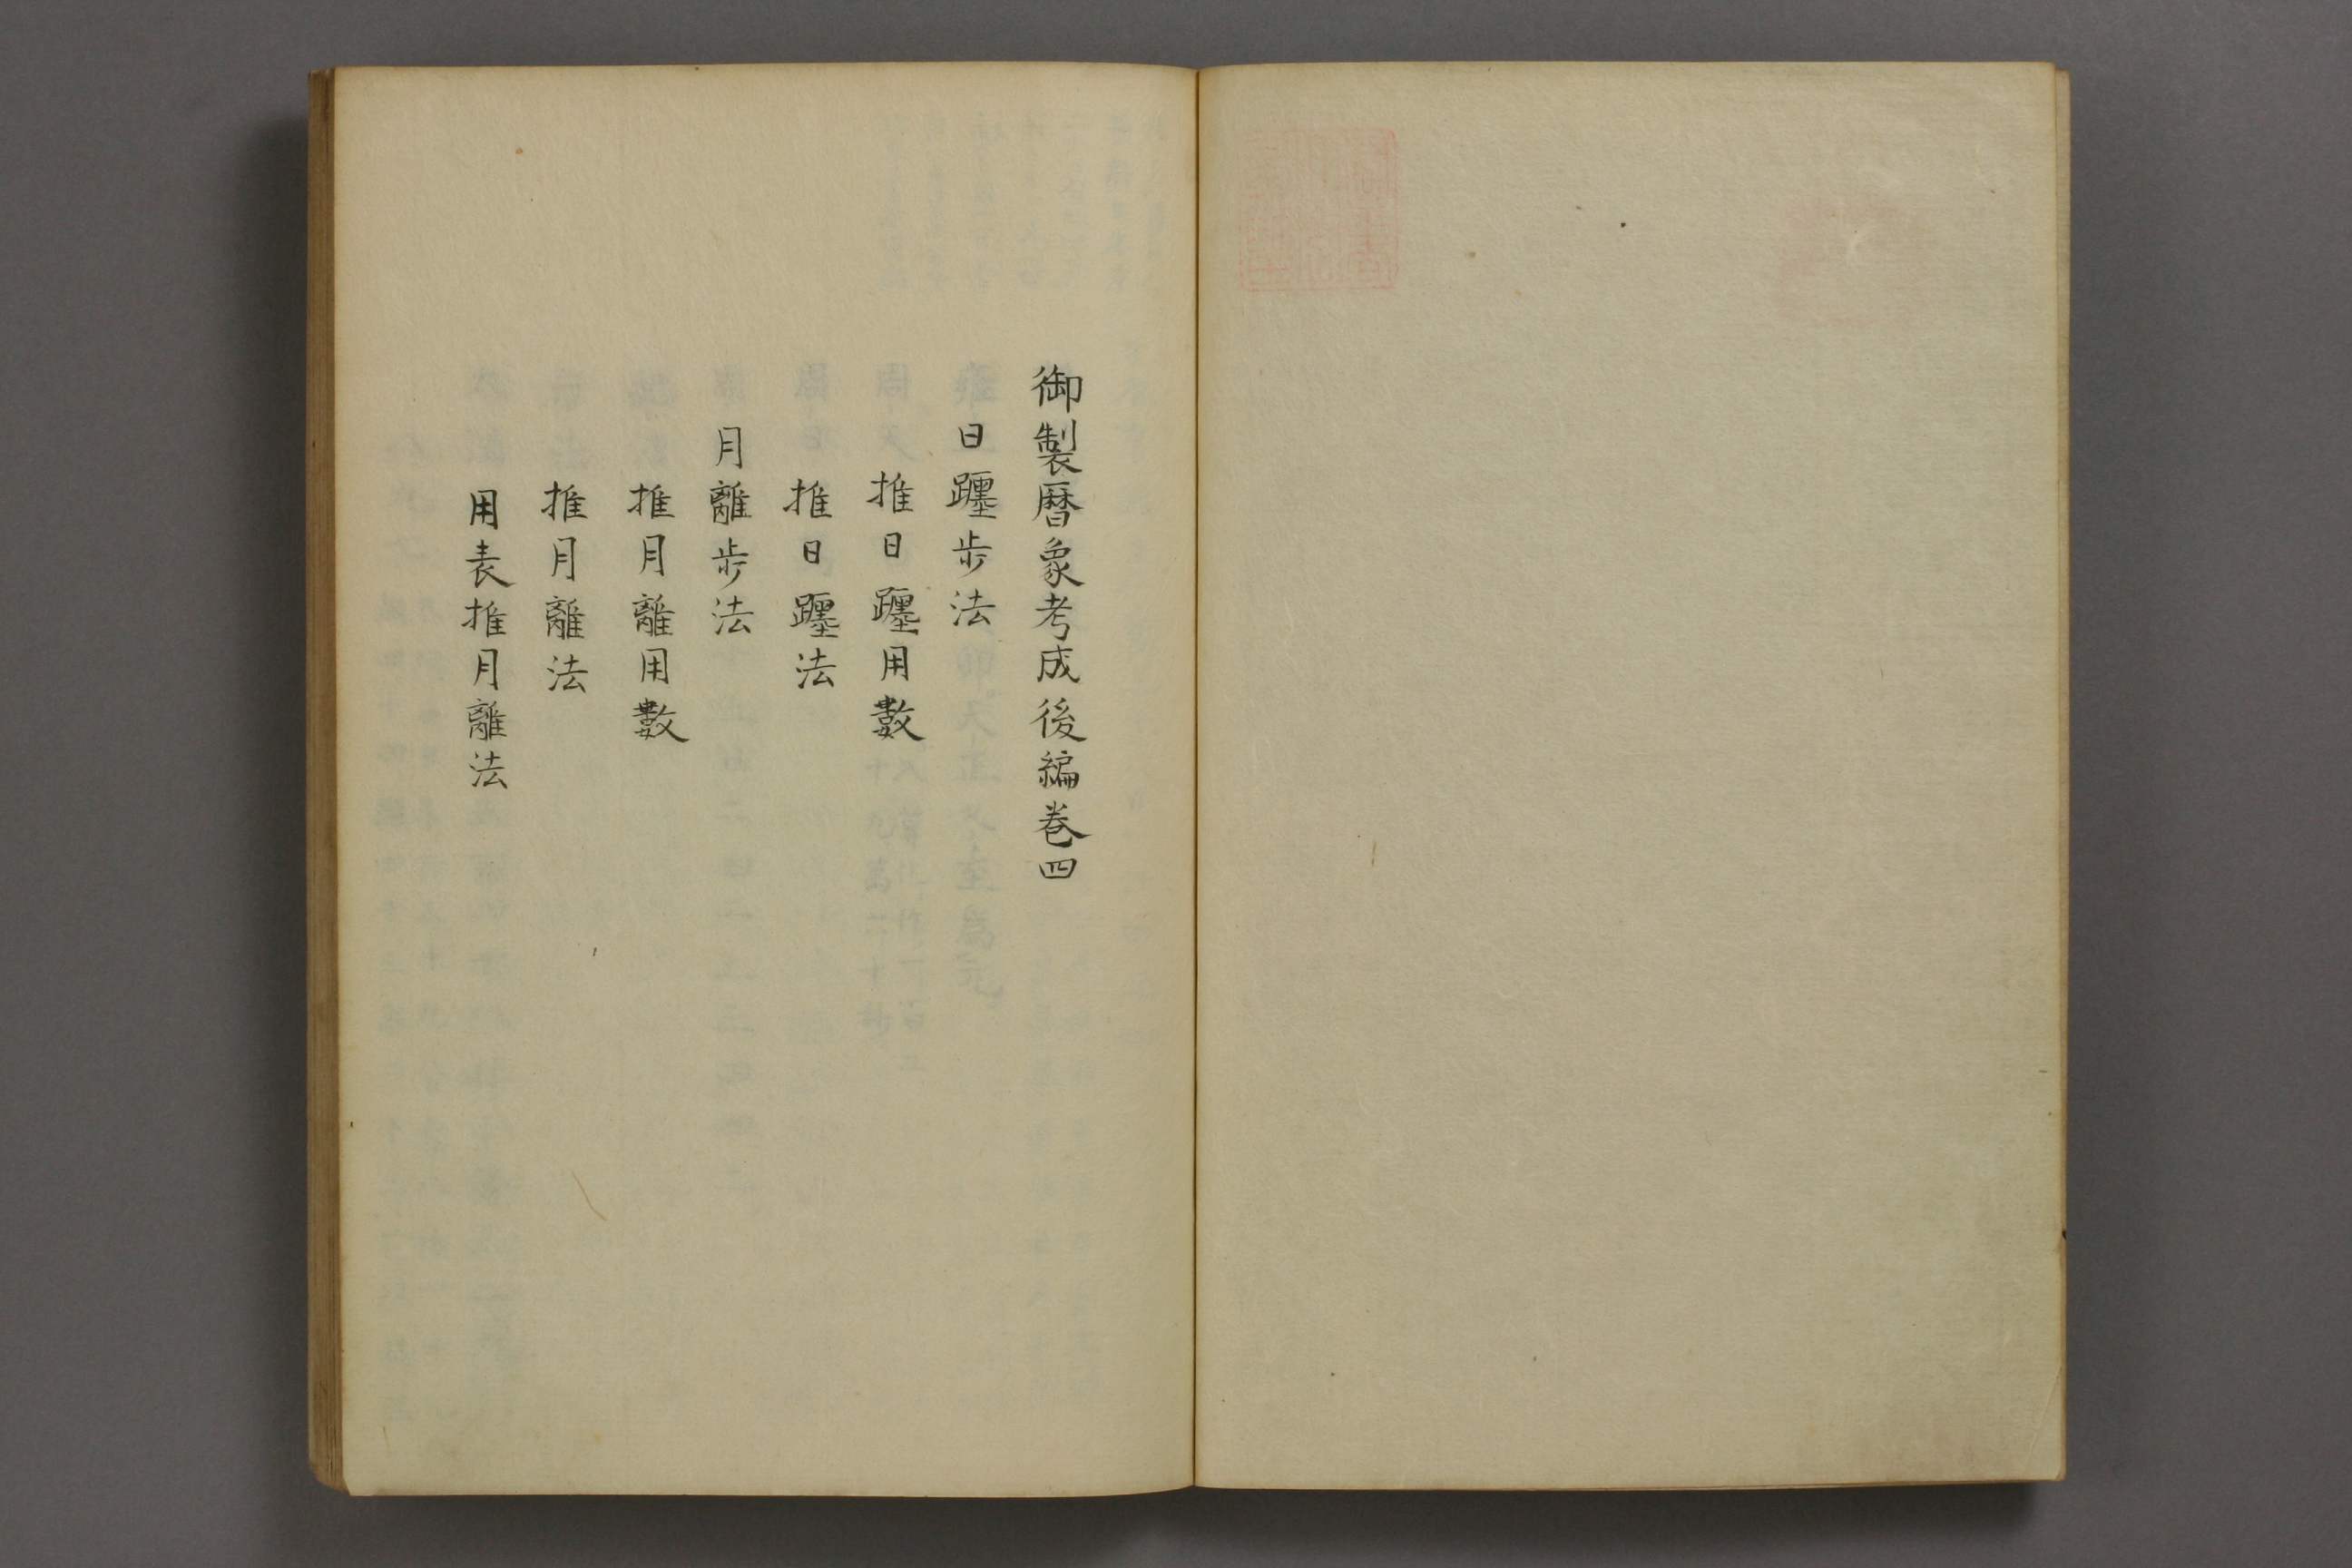 御製暦象考成後編巻四
日躔步法
推日躔用數
推日躔法
月離步法
推月離用數
推月離法
用表推月離法